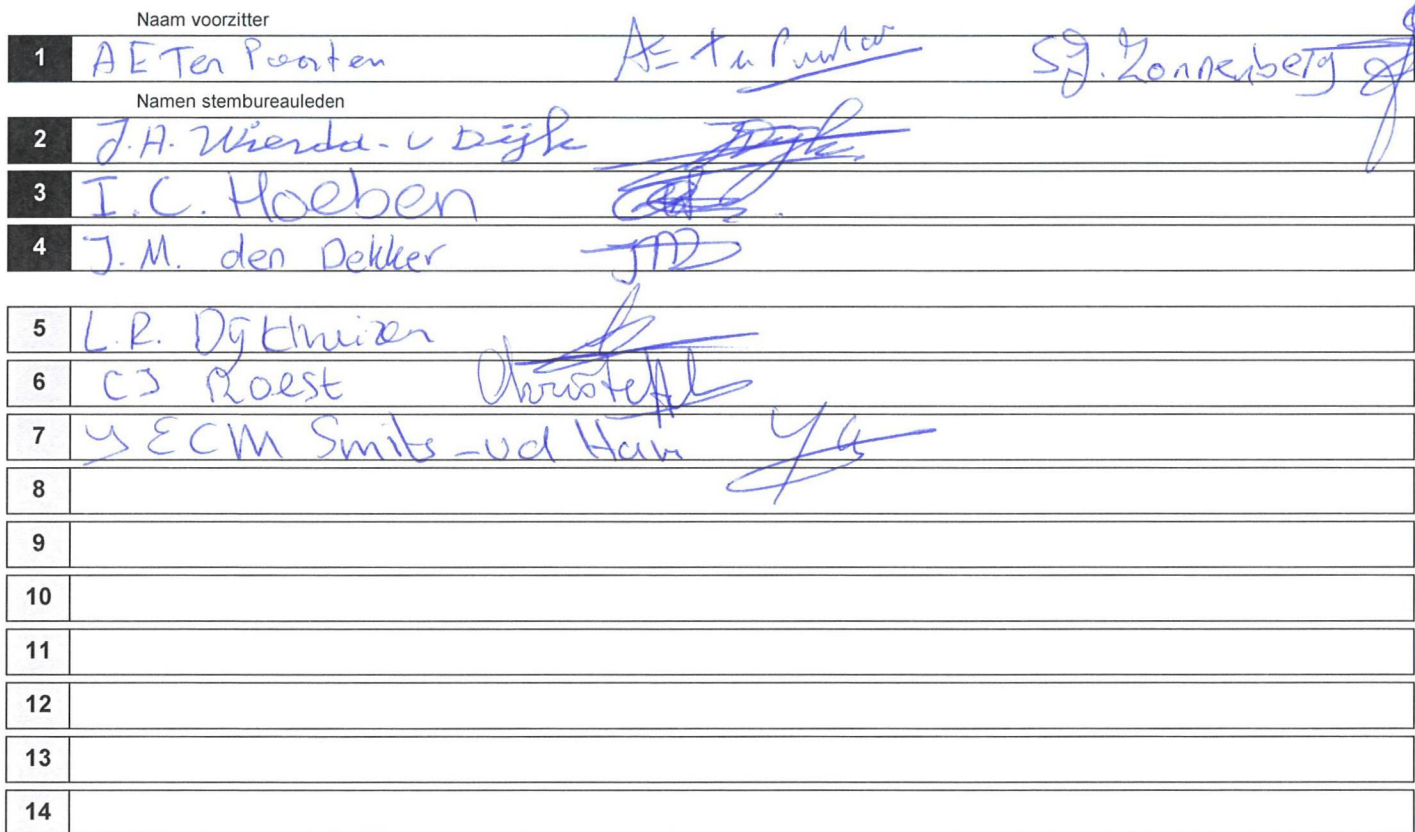 Naam voorzitter
1 A E Ten Poorten S.J. Zonnenberg
Namen stembureauleden
2 J.A. Wierda - v Dijk
3 I.C. Hoeben
4 J.M. den Dekker
5 L.R. Dijkhuizen
6 CJ Roest
7 Y E C M Smits - vd Ham
8
9
10
11
12
13
14